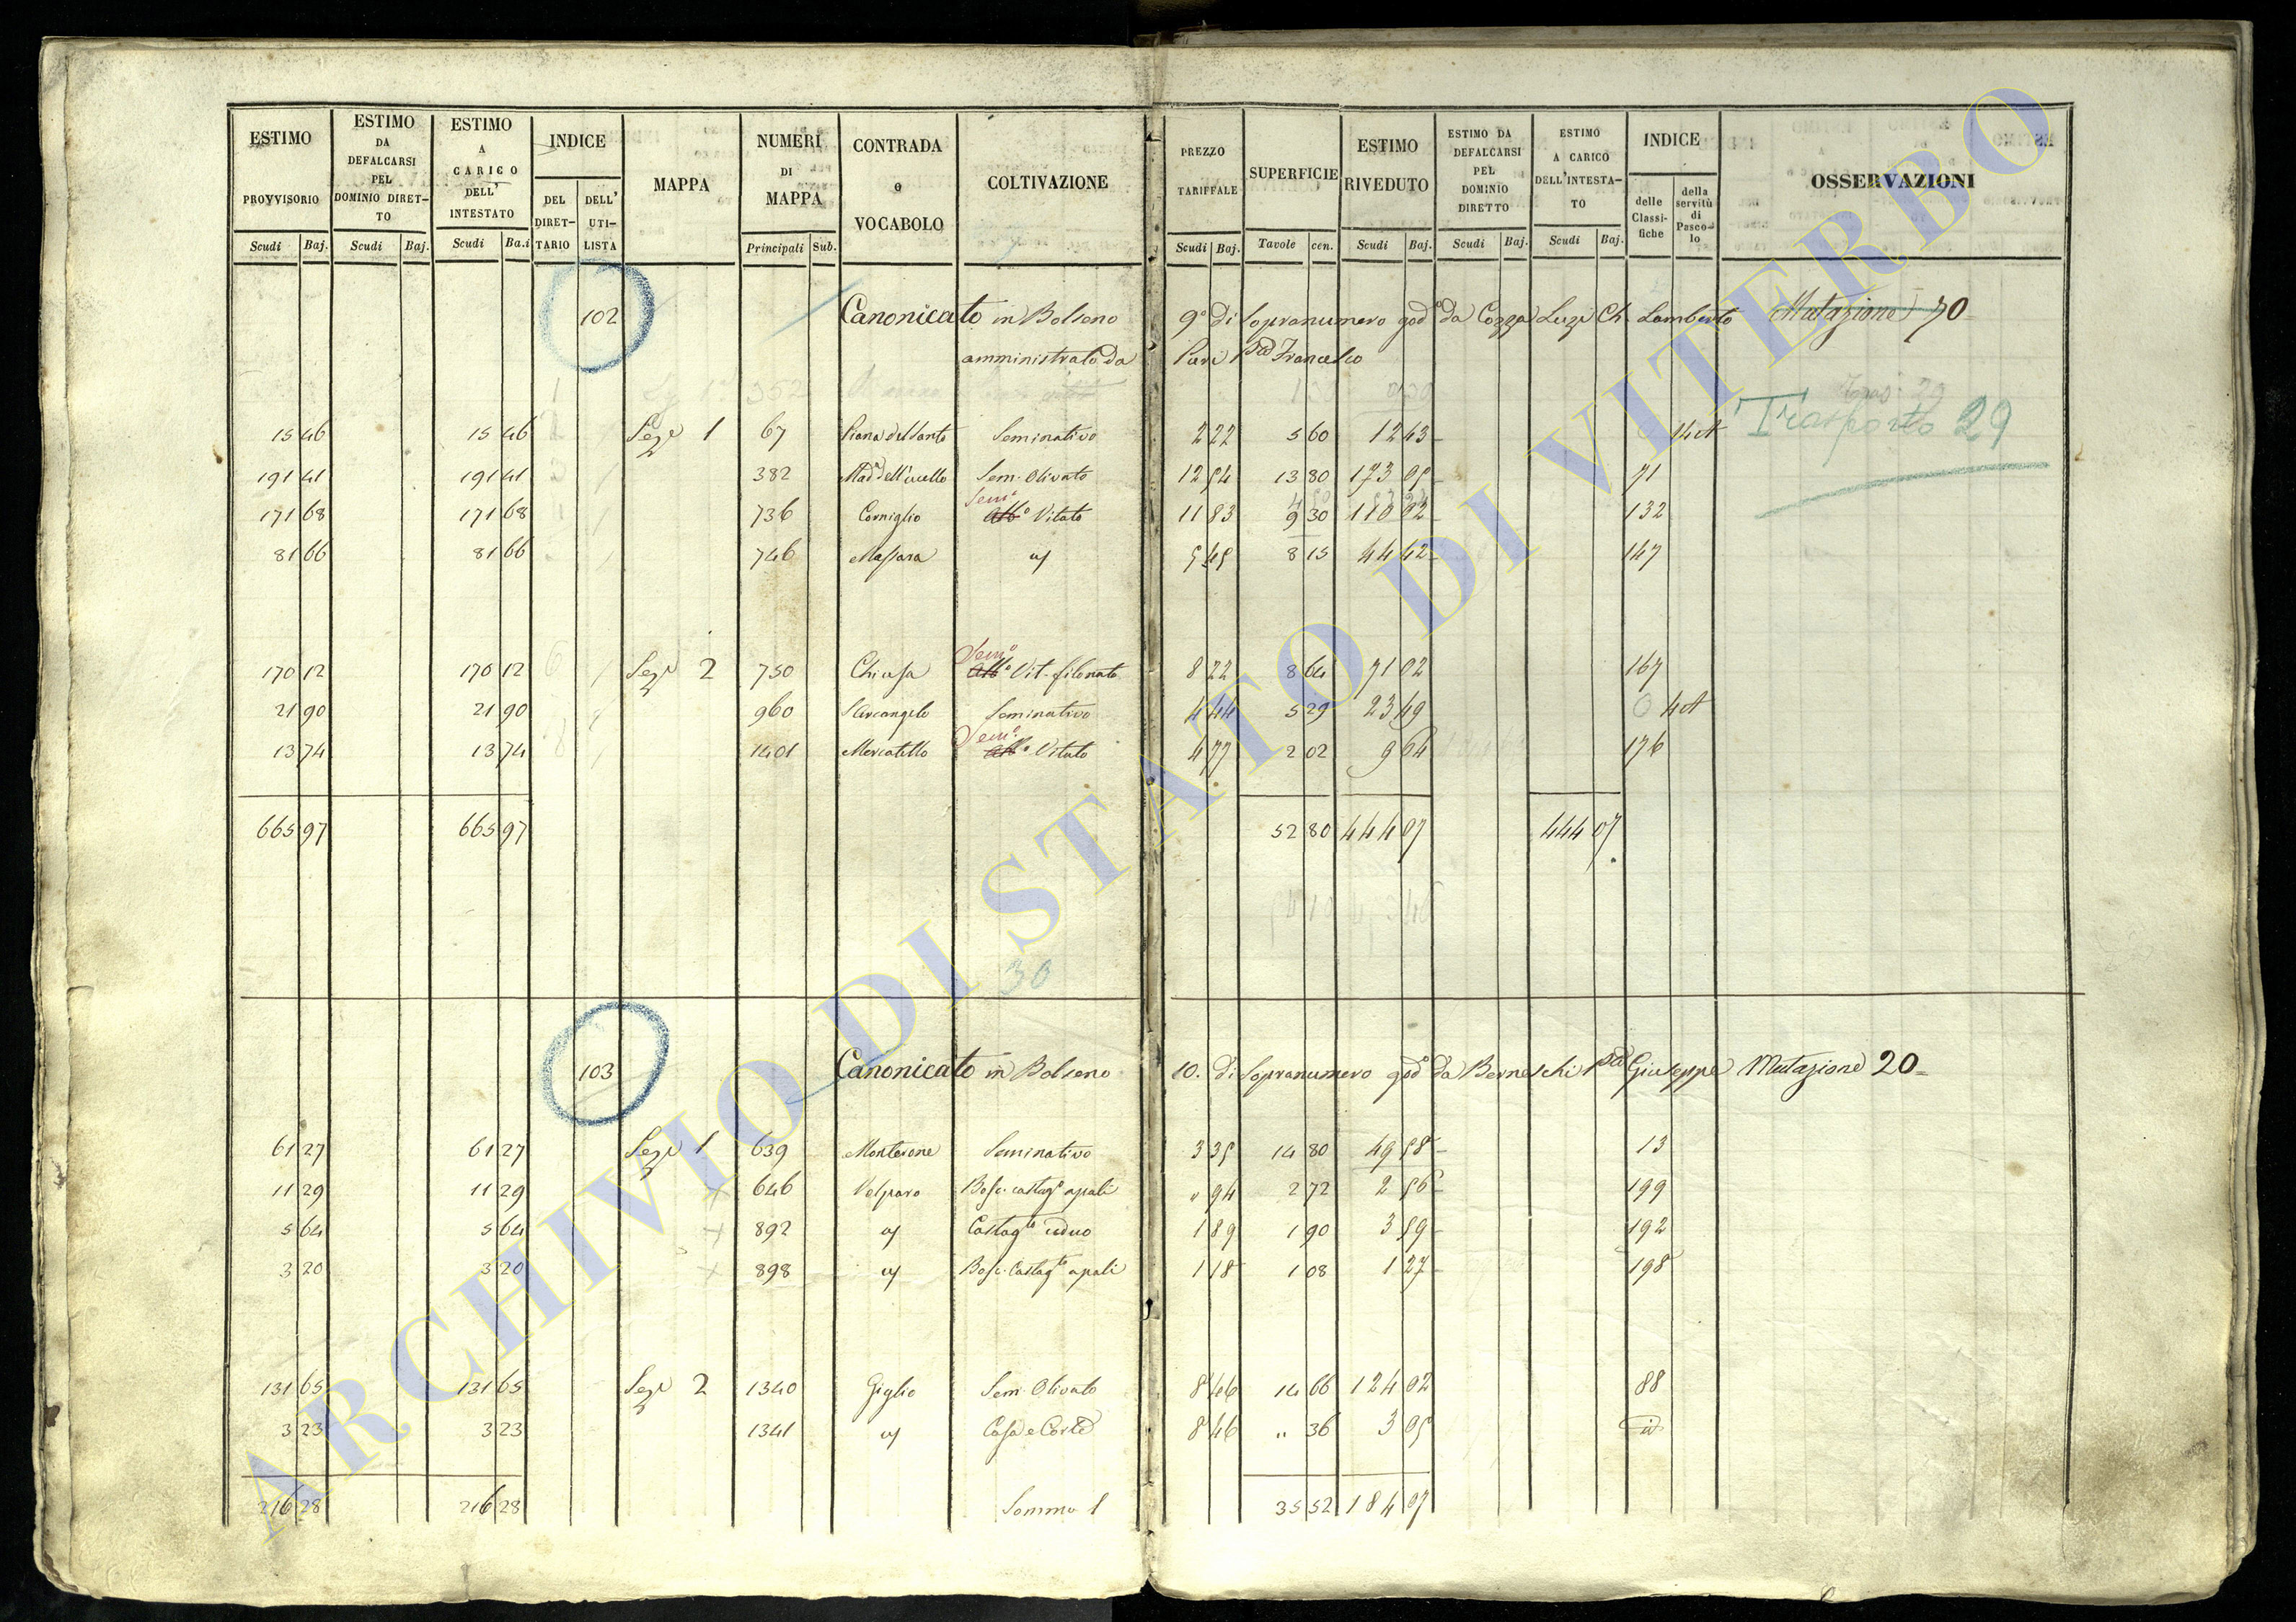 ESTIMO PROVVISORIO Scudi Baj. ESTIMO DA DEFALCARSI PEL DOMINIO DIRET-TO Scudi Baj. ESTIMO A CARICO DELL' INTESTATO Scudi Ba.i INDICE DEL DIRET-TARIO DELL' UTI-LISTA MAPPA NUMERI DI MAPPA Principali Sub. CONTRADA o VOCABOLO COLTIVAZIONE PREZZO TARIFFALE Scudi Baj. SUPERFICIE Tavole cen. ESTIMO RIVEDUTO Scudi Baj. ESTIMO DA DEFALCARSI PEL DOMINIO DIRETTO Scudi Baj. ESTIMO A CARICO DELL'INTESTA-TO Scudi Baj. INDICE delle Classi-fiche della servitù di Pasco-lo OSSERVAZIONI
102 Canonicato in Bolseno 9° di Sopranumero god° da Cozza Luzi Ch. Lamberto Mutazione 70
amministrato da Francesco
352
15 46 15 46 Seze 1 67 Piana del Santo Seminativo 2 22 5 60 12 43 14 A Trasporto 29
191 41 191 41 382 Sem. Olivato 12 54 13 80 173 05 71
171 68 171 68 736 Corniglio Sem° Vitato 11 83 9 30 132
81 66 81 66 746 Massara 5 45 8 15 44 42 147
170 12 170 12 Seze 2 750 Chiusa Sem° Vit. filonato 8 22 8 64 71 02 167
21 90 21 90 960 S Arcangelo Seminativo 4 44 5 29 23 49 4 A
13 74 13 74 1401 Mercatello Sem° Vitato 4 77 2 02 9 64 176
665 97 665 97 52 80 444 07 444 07
30
103 Canonicato in Bolseno 10. di Sopranumero god° da Berneschi Giuseppe Mutazione 20
61 27 61 27 Sezr 1 639 Monterone Seminativo 3 35 14 80 49 58 13
11 29 11 29 646 Volparo Bosc. castag° a pali " 94 2 72 2 56 199
5 64 5 64 892 Castagto ceduo 1 89 1 90 3 59 192
3 20 3 20 898 Bosc. Castagto a pali 1 18 1 08 1 27 198
131 65 131 65 Sezr 2 1340 Giglio Sem. Olivato 8 46 14 66 124 02 88
3 23 3 23 1341 Casa e Corte 8 46 " 36 3 05 id
216 28 216 28 Somma 35 52 184 07
ARCHIVIO DI STATO DI VITERBO